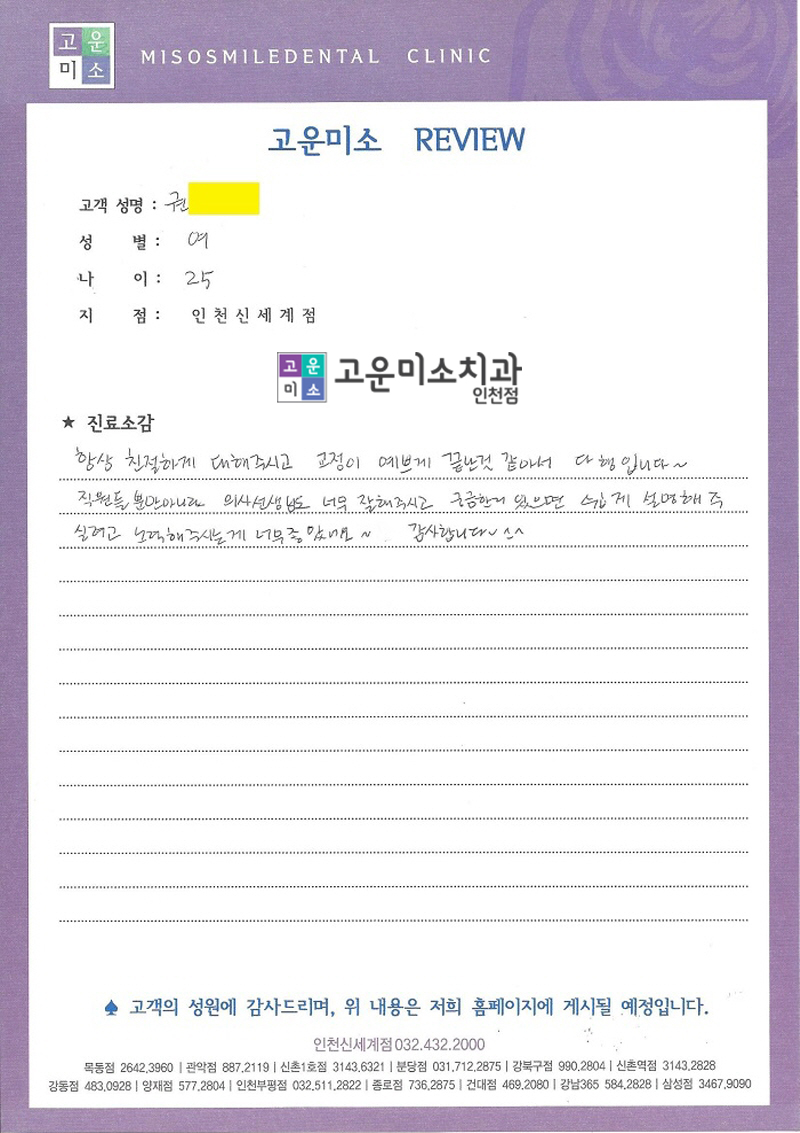 고운
미소
MISOSMILEDENTAL CLINIC
고운미소 REVIEW
고객 성명 : 권
성 별 : 여
나 이 : 25
지 점 : 인천신세계점
고운
미소
고운미소치과
인천점
★ 진료소감
항상 친절하게 대해주시고 교정이 예쁘게 끝난것 같아서 다행입니다~
직원들 뿐만아니라 의사선생님도 너무 잘해주시고 궁금한거 있으면 쉽게 설명해 주
실려고 노력해주시는게 너무좋았네요~ 감사합니다~ ^^
♠ 고객의 성원에 감사드리며, 위 내용은 저희 홈페이지에 게시될 예정입니다.
인천신세계점 032.432.2000
목동점 2642,3960 | 관악점 887,2119 | 신촌1호점 3143,6321 | 분당점 031,712,2875 | 강북구점 990,2804 | 신촌역점 3143,2828
강동점 483,0928 | 양재점 577,2804 | 인천부평점 032,511,2822 | 종로점 736,2875 | 건대점 469,2080 | 강남365 584,2828 | 삼성점 3467,9090